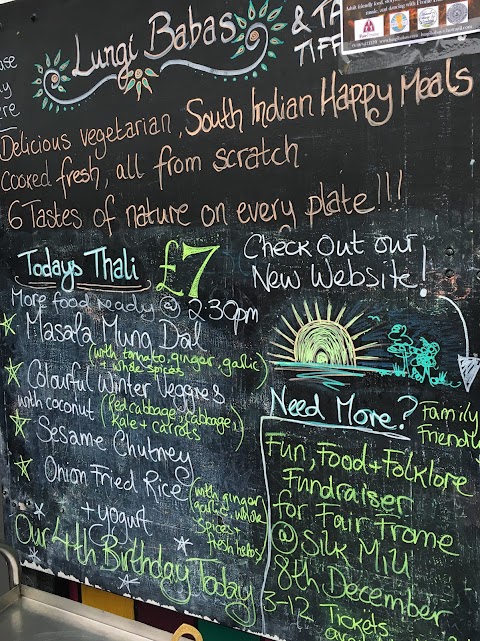 Lungi Babas
& TA
TIFF
Delicious vegetarian, South Indian Happy Meals
Cooked fresh, all from scratch
6 Tastes of nature on every plate!!!
Todays Thali £7
More food ready @ 2:30pm
Masala Mung Dal
(with tomato, ginger, garlic
+ whole spices)
Colourful Winter Veggies
with coconut (Red cabbage, cabbage,
Kale + carrots)
Sesame Chutney
Onion Fried Rice (with ginger
garlic, whole
spices +
fresh herbs)
+ yogurt
Our 4th Birthday Today
Check Out our
New Website!
Need More?
Family
Friendly
Fun, Food + Folklore
Fundraiser
for Fair Frome
@ Silk Mill
8th December
3-12 Tickets